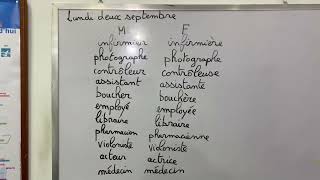 Lundi deux septembre
M F
infirmier infirmière
photographe photographe
contrôleur contrôleuse
assistant assistante
boucher bouchère
employé employée
libraire libraire
pharmacien pharmacienne
violoniste violoniste
acteur actrice
médecin médecin